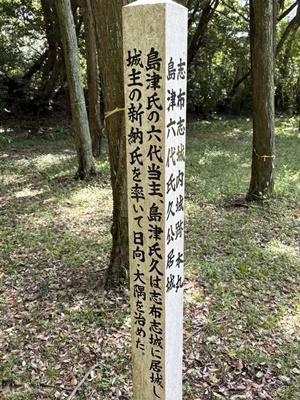 志布志城内城跡本丸
島津六代氏久公居城
島津氏の六代当主 島津氏久は志布志城に居城し
城主の新納氏を率いて日向・大隅を治めた。